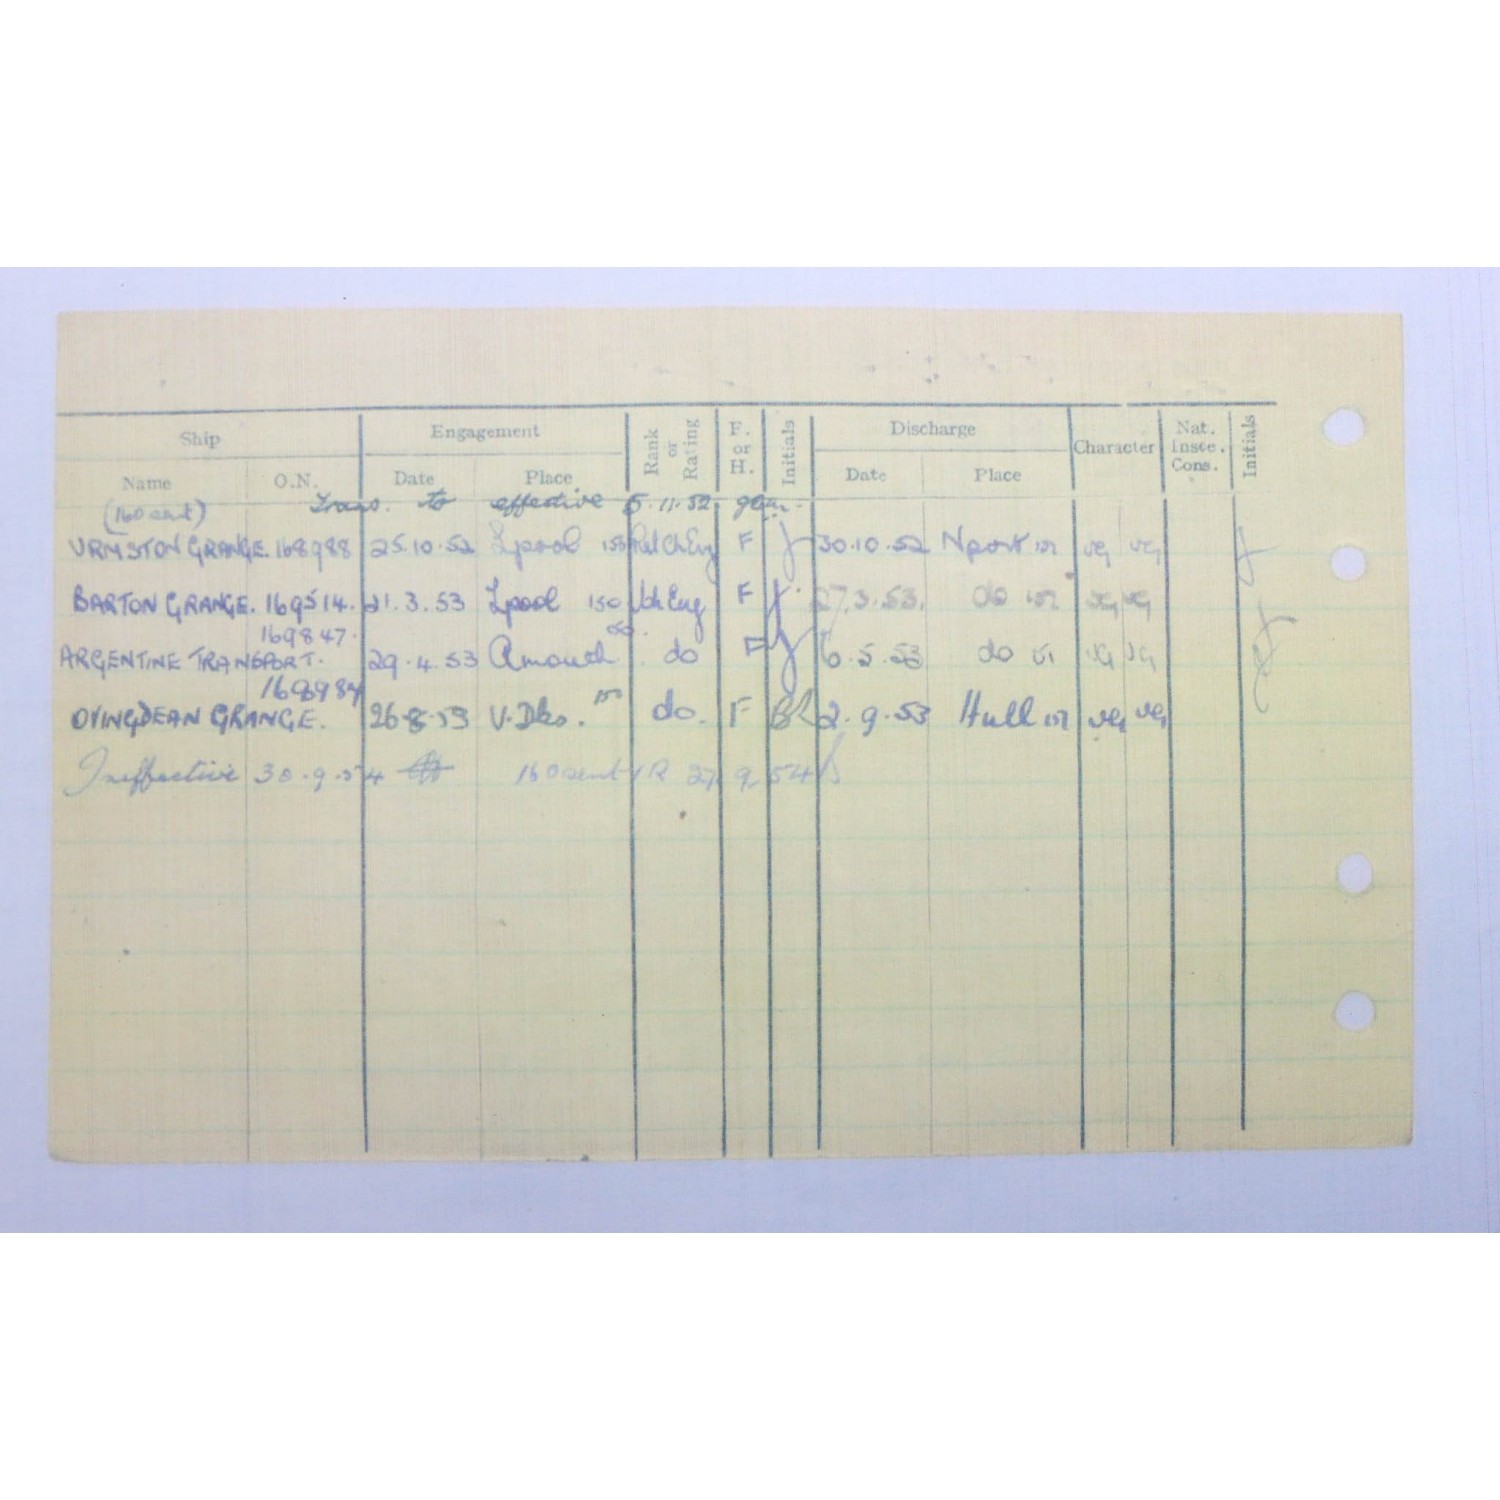 Ship Engagement Rank or Rating F. or H. Initials Discharge Character Nat. Insce. Cons. Initials
Name O.N. Date Place Date Place
(160 sent) Trans. to effective 5.11.52
URMSTON GRANGE. 168988 25.10.52 Lpool 150 Rel Ch Eng F 30.10.52 Nport 151 VG VG
BARTON GRANGE. 169514. 21.3.53 Lpool 150 Ch Eng F 27.3.53. do 151 VG VG
169847.
ARGENTINE TRANSPORT. 29.4.53 Amouth 150. do F 6.5.53 do 151 VG VG
168987
OVINGDEAN GRANGE. 26.8.53 V.Dks. 150 do. F 2.9.53 Hull 151 VG VG
Ineffective 30.9.54 160 sent 27 9 54